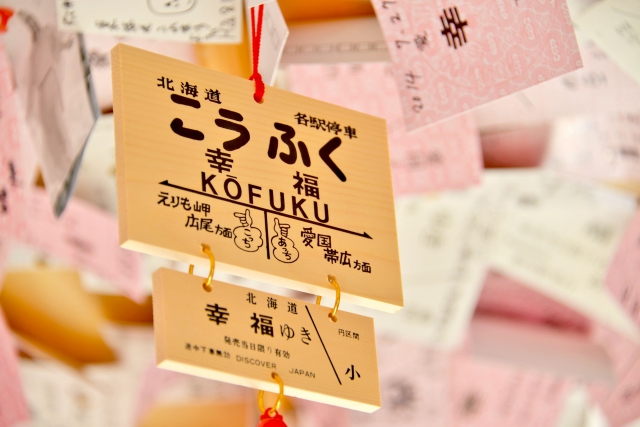 北海道
各駅停車
こうふく
幸福
KŌFUKU
えりも岬
広尾方面
こっち
あっち
愛国
帯広方面
北海道
幸福ゆき
円区間
発売当日限り有効
途中下車無効 DISCOVER JAPAN
小
2014 9.27
幸